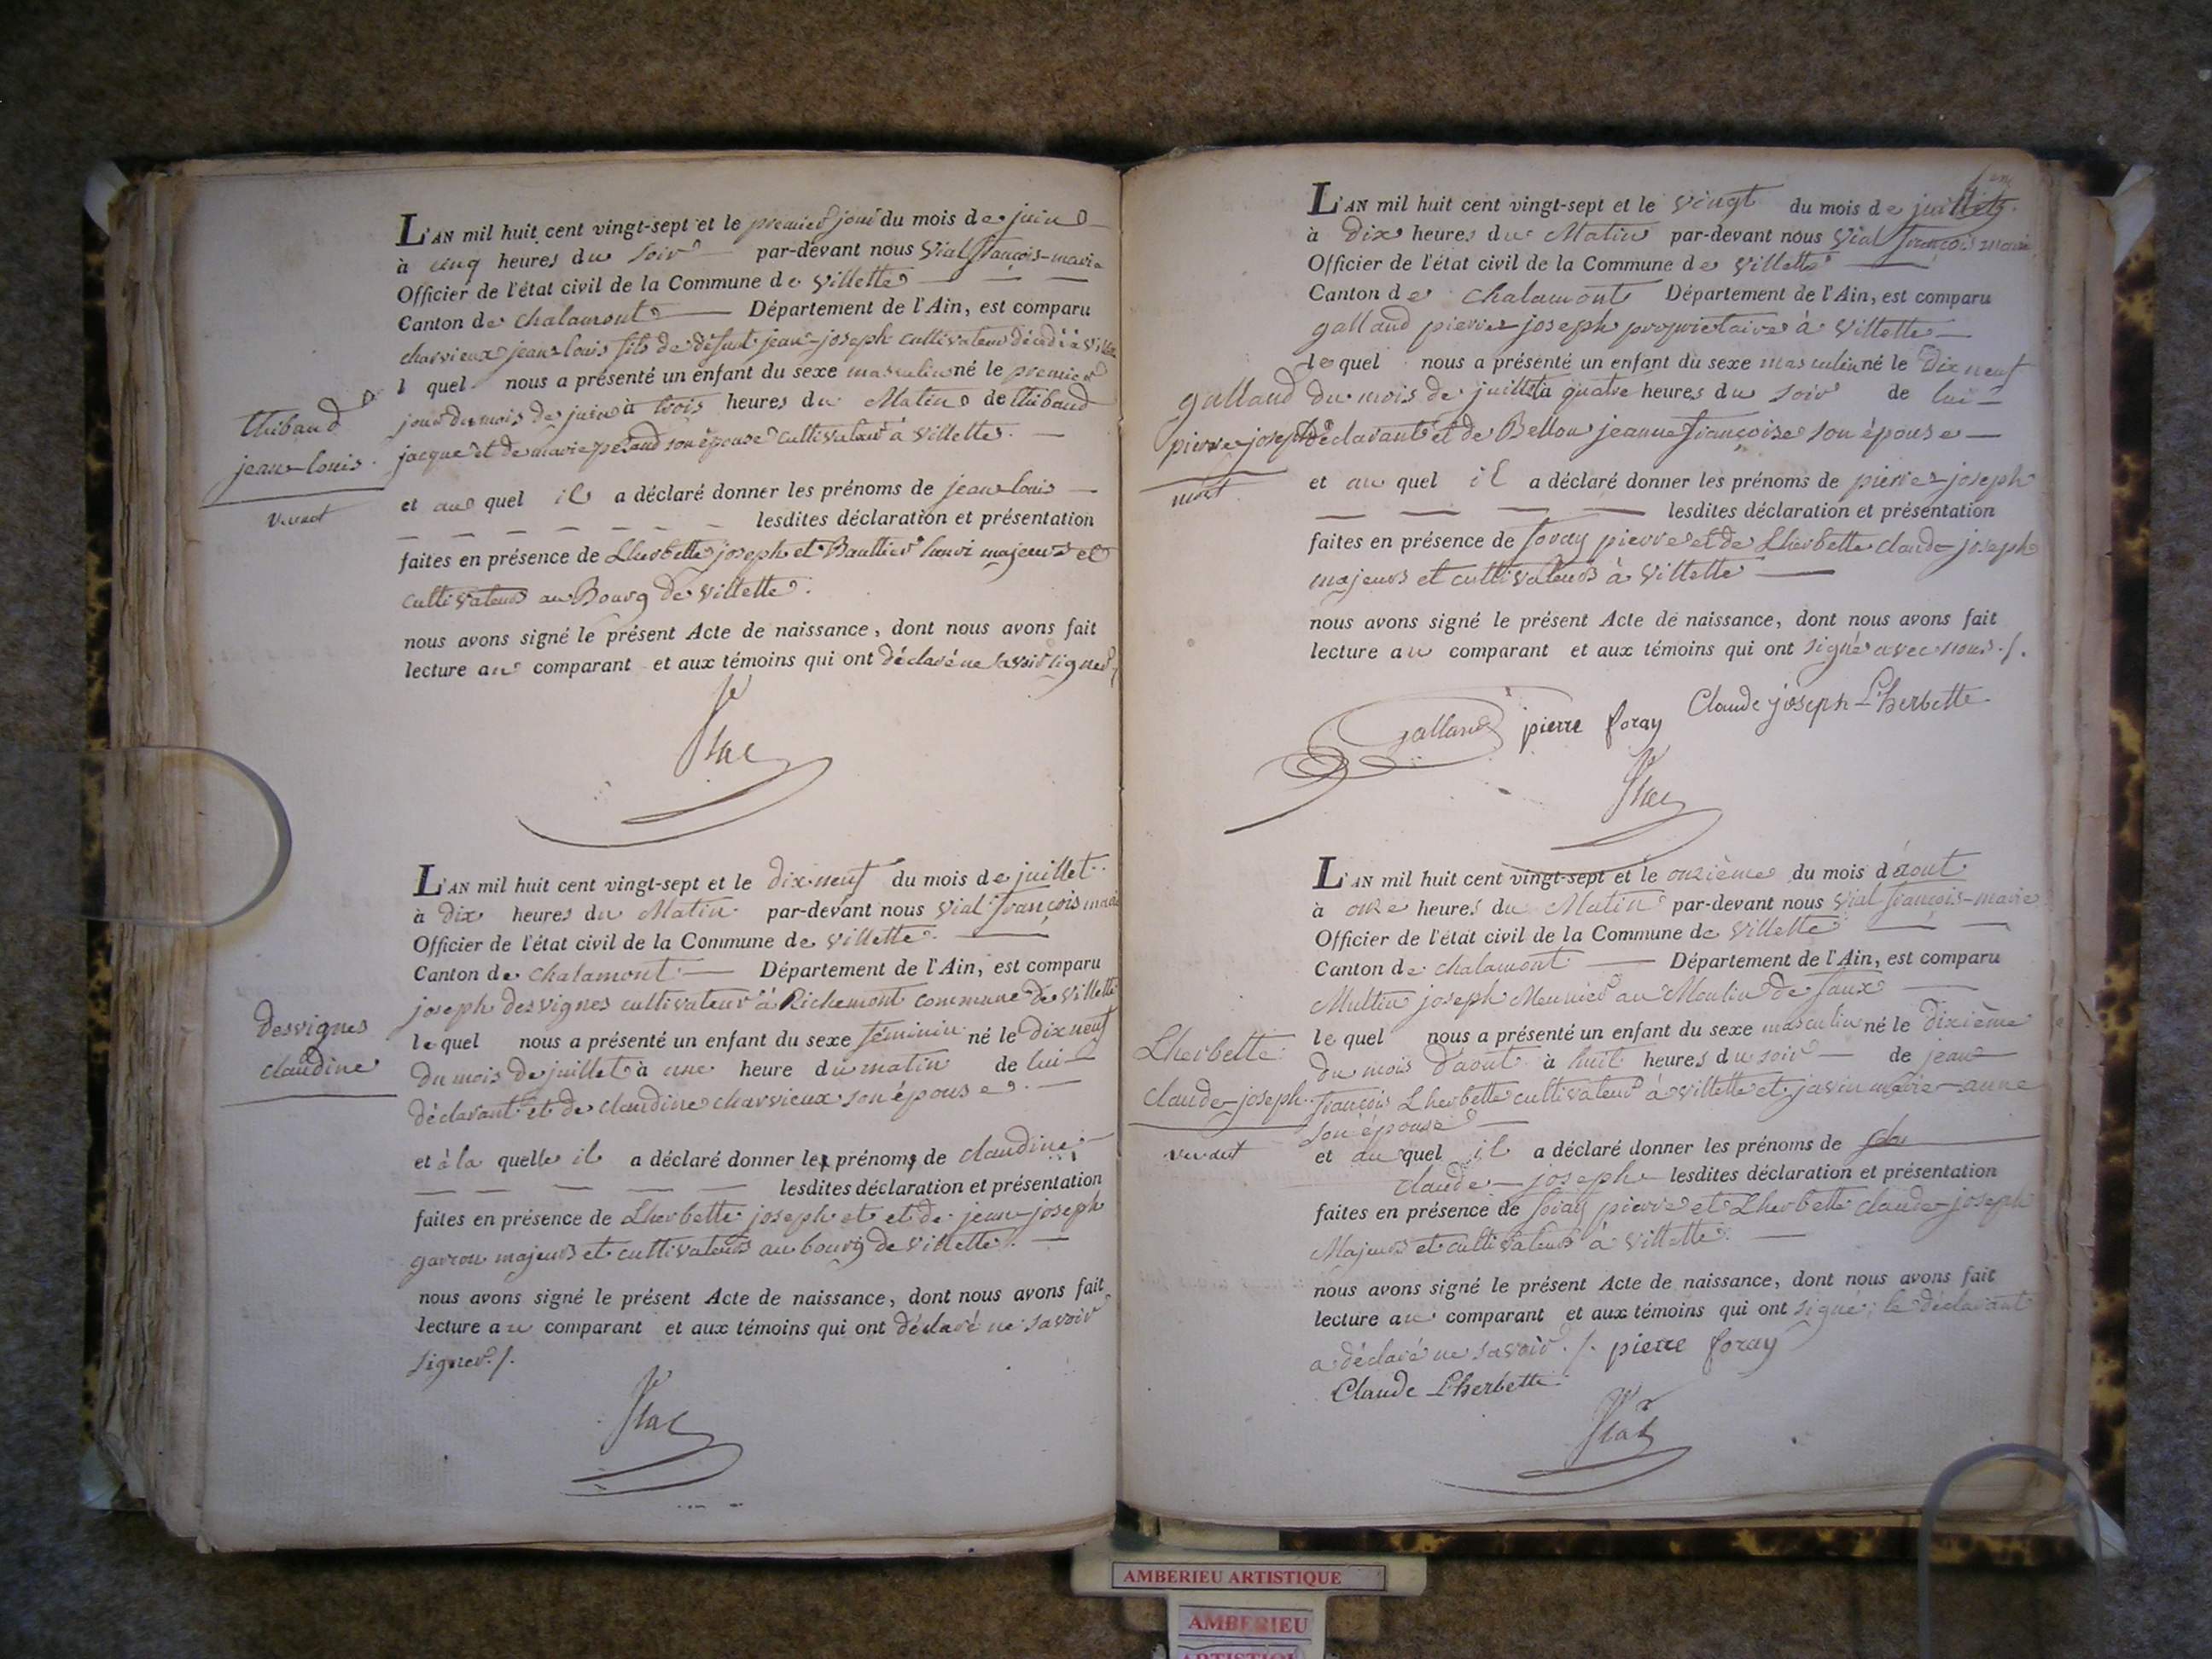 L'AN mil huit cent vingt-sept et le premier jour du mois de juin
à cinq heures du soir par-devant nous Vial françois-marie
Officier de l'état civil de la Commune de Villette
Canton de chalamont Département de l'Ain, est comparu
charvieux jean-louis fils de défunt jean-joseph cultivateur décédé à
l quel nous a présenté un enfant du sexe masculin né le premier
jour du mois de juin à trois heures du Matin de thibaud
jacque et de marie son épouse cultivateur à Villette.
et au quel il a déclaré donner les prénoms de jean-louis
lesdites déclaration et présentation
faites en présence de Lherbette joseph et Baultier henri majeurs et
cultivateurs au Bourg de Villette.
nous avons signé le présent Acte de naissance, dont nous avons fait
lecture au comparant et aux témoins qui ont déclaré ne savoir signer
thibaud
jean-louis.
vivant
L'AN mil huit cent vingt-sept et le dix-neuf du mois de juillet
à dix heures du Matin par-devant nous Vial françois marie
Officier de l'état civil de la Commune de Villette.
Canton de chalamont Département de l'Ain, est comparu
joseph desvignes cultivateur à Richemont commune de Villette
le quel nous a présenté un enfant du sexe féminin né le dix neuf
du mois de juillet à une heure du matin de lui
déclarant et de claudine charvieux son épouse.
et à la quelle il a déclaré donner le prénom de claudine
lesdites déclaration et présentation
faites en présence de Lherbette joseph et et de jean-joseph
garron majeurs et cultivateurs au bourg de Villette.
nous avons signé le présent Acte de naissance, dont nous avons fait
lecture au comparant et aux témoins qui ont déclaré ne savoir
signer./.
desvignes
claudine
L'AN mil huit cent vingt-sept et le vingt du mois de juillet
à dix heures du Matin par-devant nous Vial françois marie
Officier de l'état civil de la Commune de Villette
Canton de chalamont Département de l'Ain, est comparu
galland pierre joseph proprietaire à Villette
le quel nous a présenté un enfant du sexe masculin né le dix neuf
du mois de juillet à quatre heures du soir de lui
déclarant et de Bellon jeanne françoise son épouse
et au quel il a déclaré donner les prénoms de pierre-joseph
lesdites déclaration et présentation
faites en présence de foray pierre et de Lherbette claude-joseph
majeurs et cultivateurs à Villette
nous avons signé le présent Acte de naissance, dont nous avons fait
lecture au comparant et aux témoins qui ont signé avec nous./.
galland
pierre-joseph
mort
galland pierre foray Claude joseph Lherbette
L'AN mil huit cent vingt-sept et le onzième du mois d'aout
à onze heures du Matin par-devant nous Vial françois-marie
Officier de l'état civil de la Commune de Villette
Canton de chalamont Département de l'Ain, est comparu
Multin joseph Meunier au Moulin de faux
le quel nous a présenté un enfant du sexe masculin né le dixième
du mois d'aout à huit heures du soir de jean
françois Lherbette cultivateur à Villette et javin marie-anne
son épouse
et au quel il a déclaré donner les prénoms de
claude-joseph lesdites déclaration et présentation
faites en présence de foray pierre et Lherbette claude-joseph
Majeurs et cultivateurs à Villette.
nous avons signé le présent Acte de naissance, dont nous avons fait
lecture au comparant et aux témoins qui ont signé; le déclarant
a déclaré ne savoir./. pierre foray
Claude Lherbette
Lherbette
claude-joseph.
vivant
AMBERIEU ARTISTIQUE
AMBERIEU
ARTISTIQUE